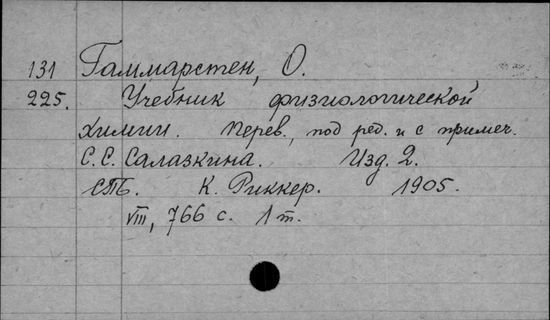 131 Гаммарстен, О.
225. Учебник физиологической
химии. Перев., под ред. и с примеч.
С. С. Салазкина. Изд. 2.
СПБ. К. Риккер. 1905.
VIII, 766 с. 1 т.